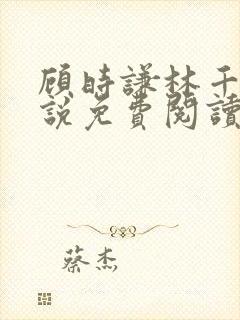 顾時謙林千
說免費閱讀
蔡杰